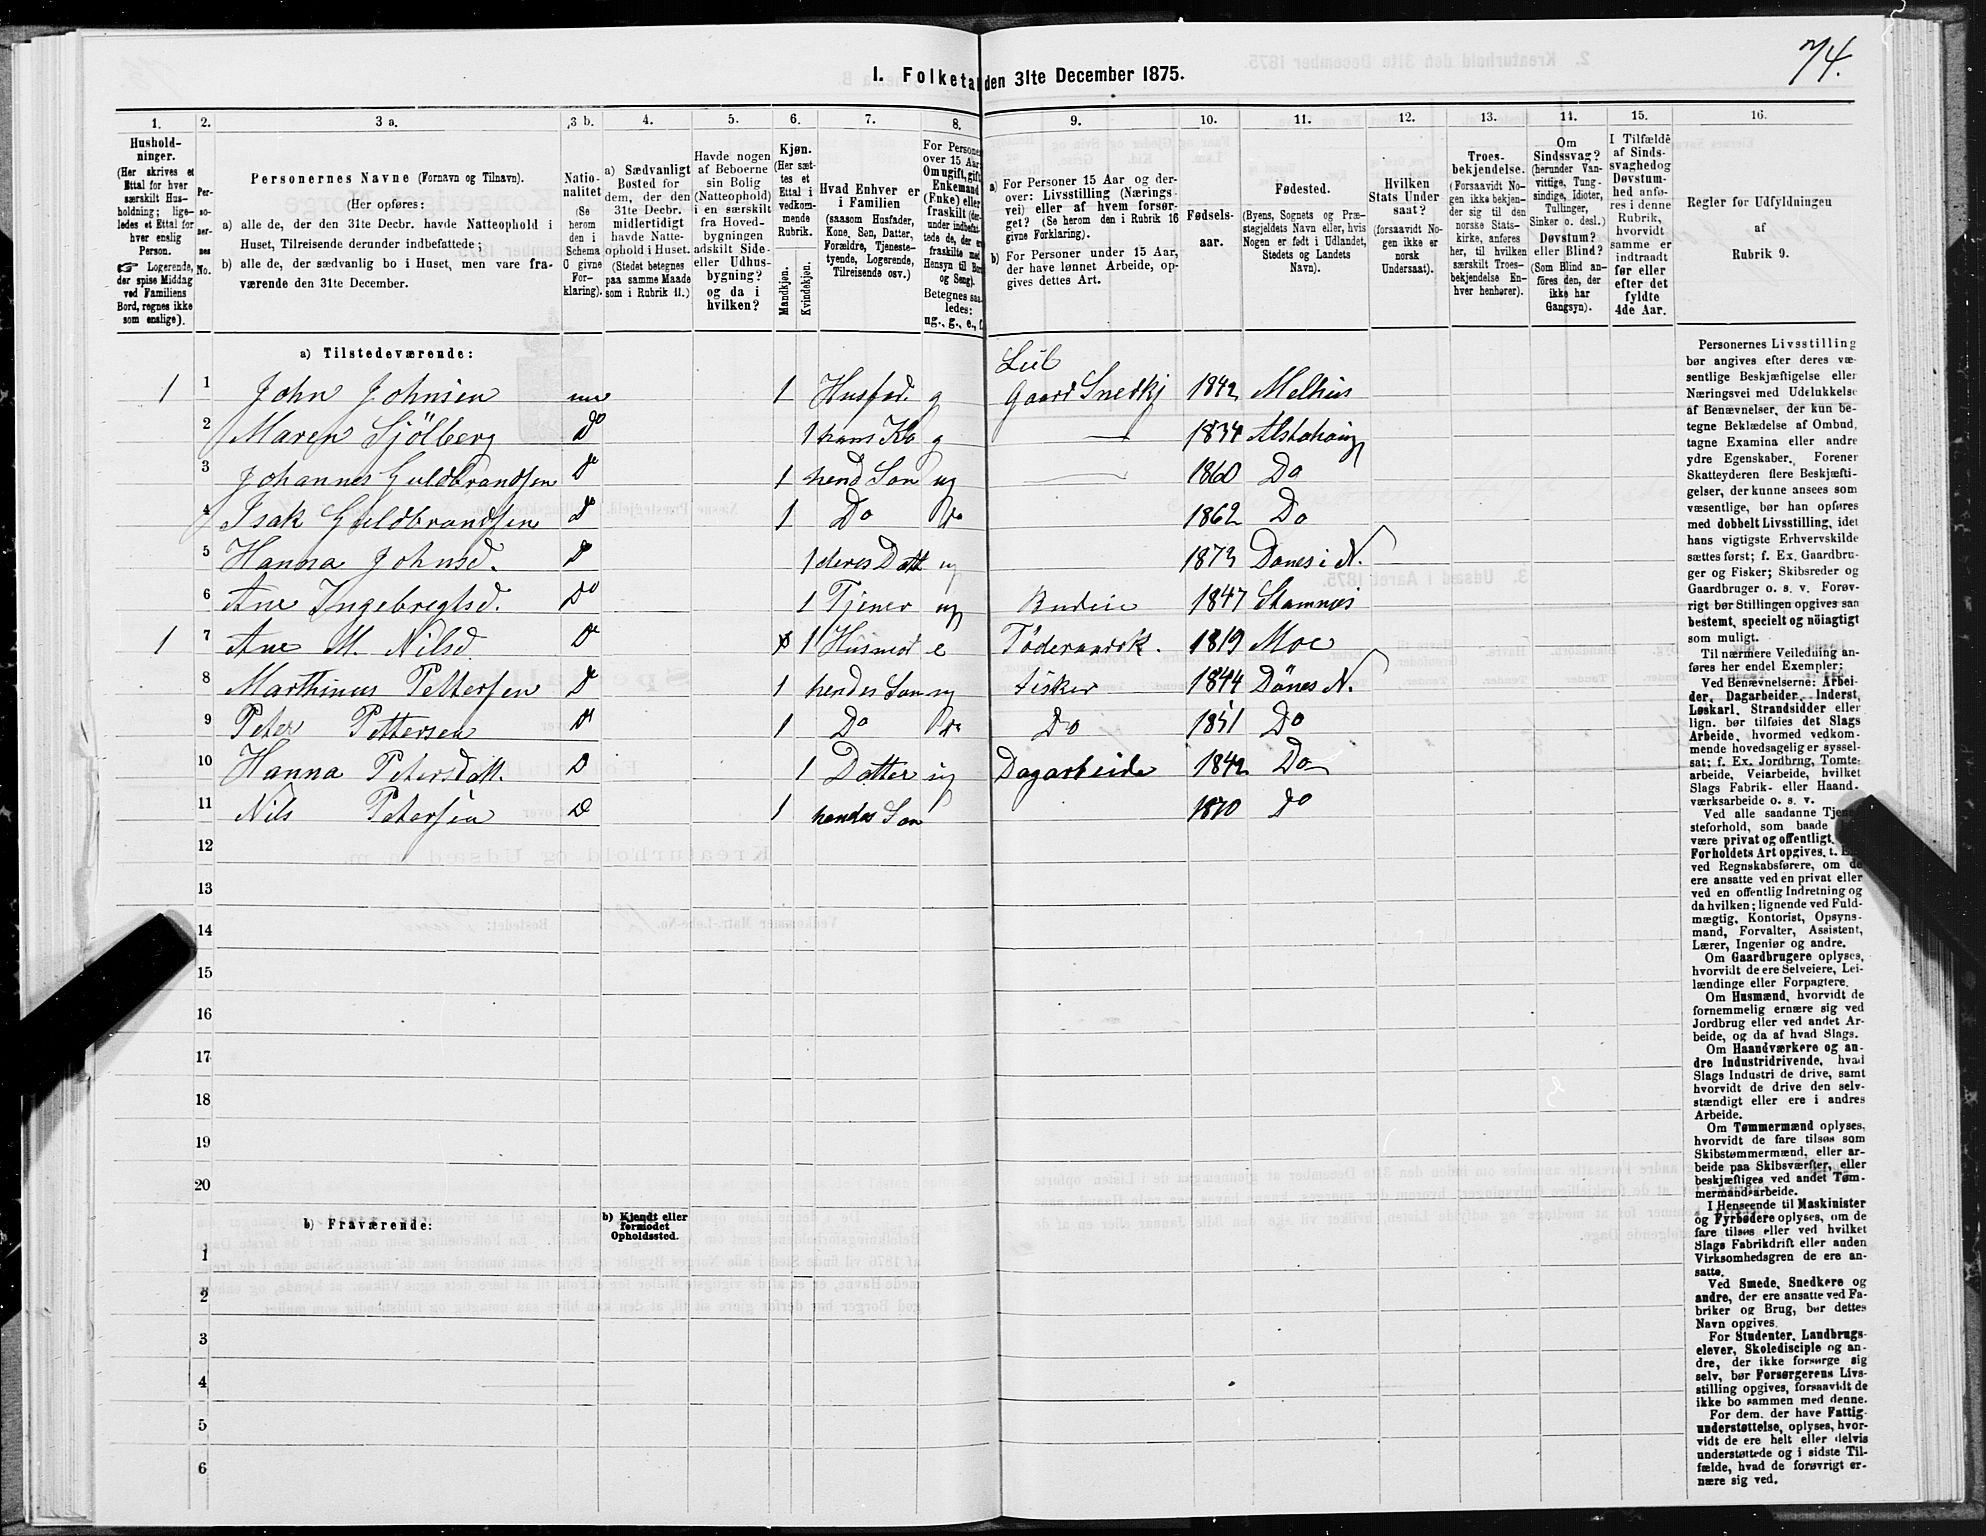 74.
I. Folketa den 31te December 1875.
1. 2. 3 a. 3 b. 4. 5. 6. 7. 8. 9. 10. 11. 12. 13. 14. 15. 16.
Hushold-
ninger.
(Her skrives et
Ettal for hver
særskilt Hus-
holdning; lige-
ledes et Ettal for
hver enslig
Person.
☞ Logerende,
der spise Middag
ved Familiens
Bord, regnes ikke
som enslige).
Per-
so-
ner-
nes
No.
Personernes Navne (Fornavn og Tilnavn).
(Her opføres:
a) alle de, der den 31te Decbr. havde Natteophold i
Huset, Tilreisende derunder indbefattede;
b) alle de, der sædvanlig bo i Huset, men vare fra-
værende den 31te December.
Natio-
nalitet
(Se
herom
den i
Schema
C givne
For-
klaring).
a) Sædvanligt
Bosted for
dem, der den
31te Decbr.
midlertidigt
havde Natte-
ophold i Huset.
(Stedet betegnes
paa samme Maade
som i Rubrik 11.)
Havde nogen
af Beboerne
sin Bolig
(Natteophold)
i en særskilt
fra Hoved-
bygningen
adskilt Side-
eller Udhus-
bygning?
og da i
hvilken?
Kjøn.
(Her sæt-
tes et
Ettal i
vedkom-
mende
Rubrik.
Mandkjøn.
Kvindekjøn.
Hvad Enhver er
i Familien
(saasom Husfader,
Kone, Søn, Datter,
Forældre, Tjeneste-
tyende, Logerende,
Tilreisende osv.)
For Persone
over 15 Aar
Om ugift, gift
Enkemand
(Enke) eller
fraskilt (der-
under indbefat-
tede de, der er
fraskilte med
Hensyn til Bord
og Seng).
Betegnes saa-
ledes:
ug., g., e., f.
a) For Personer 15 Aar og der-
over: Livsstilling (Nærings-
vei) eller af hvem forsør-
get? (Se herom den i Rubrik 16
givne Forklaring).
b) For Personer under 15 Aar,
der have lønnet Arbeide, op-
gives dettes Art.
Fødsels-
aar.
Fødested.
(Byens, Sognets og Præ-
stegjeldets Navn eller, hvis
Nogen er født i Udlandet,
Stedets og Landets
Navn).
Hvilken
Stats Under
saat?
(forsaavidt No-
gen ikke er
norsk
Undersaat).
Troes-
bekjendelse.
(Forsaavidt No-
gen ikke bekjen-
der sig til den
norske Stats-
kirke, anføres
her, til hvilken
særskilt Troes-
bekjendelse En-
hver henhører).
Om
Sindssvag?
(herunder Van-
vittige, Tung-
sindige, Idioter,
Tullinger,
Sinker o. desl.)
Døvstum?
eller Blind?
(Som Blind an-
føres den, der
ikke har
Gangsyn).
I Tilfælde
af Sinds-
svaghed og
Døvstum-
hed anfø-
res i denne
Rubrik,
hvorvidt
samme er
indtraadt
før eller
efter det
fyldte
4de Aar.
Regler for Udfyldningen
af
Rubrik 9.
a) Tilstedeværende:
1 1 John Johnsen 1 Husfad. g Gaard Snedkj 1842 Melhus
2 Maren Sjölberg Do 1 hans Ko g — 1834 Alstahaug
3 Johannes Guldbrandsen Do 1 hend Søn ug — 1860 Do
4 Isak Guldbrandsen D 1 Do Do 1862 Do
5 Hanna Johnsd. D 1 deres Datt ug 1873 Dønes i N.
6 Ane Ingebregtsd. Do 1 Tjener ug Budeie 1847 Stamnes
1 7 Ane M. Nilsd Do 1 Husmod e Føderaadsk. 1819 Moe
8 Marthinus Pettersen D 1 hendes Søn ug fisker 1844 Dönes N.
9 Peter Pettersen D 1 Do Do Do 1851 Do
10 Hanna Petersdatt. D 1 Datter ug Dagarbeide 1842 Do
11 Nils Petersen D 1 hendes Søn 1870 Do
12
13
14
15
16
17
18
19
20
b) Fraværende:
b) Kjendt eller
formodet
Opholdssted.
1
2
3
4
5
6
Personernes Livsstilling
bør angives efter deres væ-
sentlige Beskjæftigelse eller
Næringsvei med Udelukkelse
af Benævnelser, der kun be-
tegne Bekládelse af Ombud,
tagne Examina eller andre
ydre Egenskaber. Forener
Skatteyderen flere Beskjæfti-
gelser, der kunne ansees som
væsentlige, bør han opføres
med dobbelt Livsstilling, idet
hans vigtigste Erhvervskilde
sættes først; f. Ex. Gaardbru-
ger og Fisker; Skibsreder og
Gaardbruger o. s. v. Forøv-
rigt bør Stillingen opgives saa
bestemt, specielt og nöiagtigt
som muligt.
Til nærmere Veiledning an-
føres her endel Exempler:
Ved Benævnelserne: Arbei-
der, Dagarbeider, Inderst,
Løskarl, Strandsidder eller
lign. bør tilføies det Slags
Arbeide, hvormed vedkom-
mende hovedsagelig er syssel-
sat; f. Ex. Jordbrug, Tomte-
arbeide, Veiarbeide, hvilket
Slags Fabrik- eller Haand-
værksarbeide o. s. v.
Ved alle saadanne Tjene-
steforhold, som baade
være privat og offentligt,
Forholdets Art opgives, t. Ex.
ved Regnskabsførere, om de
ere ansatte ved en privat eller
ved en offentlig Indretning og
da hvilken; lignende ved Fuld-
mægtig, Kontorist, Opsyns-
mand, Forvalter, Assistent,
Lærer, Ingeniør og andre.
Om Gaardbrugere oplyses,
hvorvidt de ere Selveiere, Lei-
lændinge eller Forpagtere.
Om Husmænd, hvorvidt de
fornemmelig ernære sig ved
Jordbrug eller ved andet Ar-
beide, og da af hvad Slags.
Om Haandværkere og an-
dre Industridrivende, hvad
Slags Industri de drive, samt
hvorvidt de drive den selv-
stændigt eller ere i andres
Arbeide.
Om Tømmermænd oplyses,
hvorvidt de fare tilsøs som
Skibstømmermænd, eller ar-
beide paa Skibsværfter, eller
beskjæftiges ved andet Tøm-
mermandsarbeide.
I Henseende til Maskinister
og Fyrbødere oplyses, om de
fare tilsøs eller ved hvilket
Slags Fabrikdrift eller anden
Virksomhedsgren de ere an-
satte.
Ved Smede, Snedkere og
andre, der ere ansatte ved Fa-
briker og Brug, bør dettes
Navn opgives.
For Studenter, Landbrugs-
elever, Skoledisciple og an-
dre, der ikke forsørge sig
selv, bør Forsørgerens Livs-
stilling opgives, forsaavidt de
ikke bo sammen med denne.
For dem, der have Fattig-
understøttelse, oplyses, hvor-
vidt de ere helt eller delvis
understøttede og i sidste Til-
fælde, hvad de forøvrigt er-
nære sig ved.